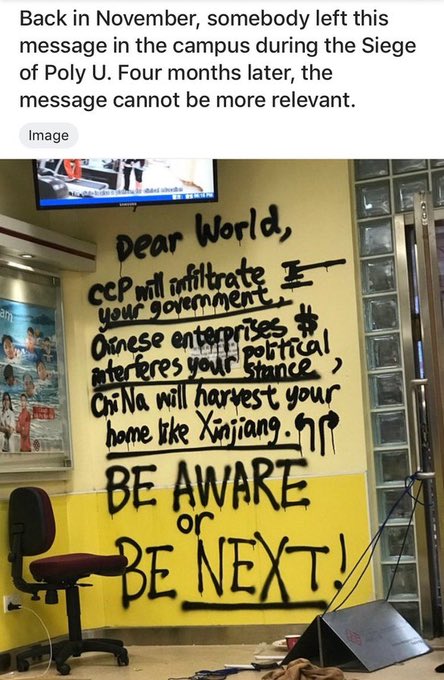 Back in November, somebody left this
message in the campus during the Siege
of Poly U. Four months later, the
message cannot be more relevant.
Image
SAMSUNG
Dear World,
CCP will infiltrate
your government.
Chinese enterprises $
interferes your political
stance,
ChiNa will harvest your
home like Xinjiang.
BE AWARE
or
BE NEXT!